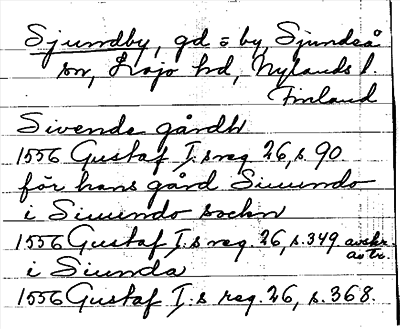 Sjundby, gd = by, Sjundeå
sn, Lojo hd, Nylands l.
Finland
Sivende gårdh
1556 Gustaf I.s reg. 26, s. 90.
för hans gård Siuundo
i Siuundo sockn
1556 Gustaf I.s reg. 26, s. 349. avskr.
avtr.
i Siunda
1556 Gustaf I.s reg. 26, s. 368.